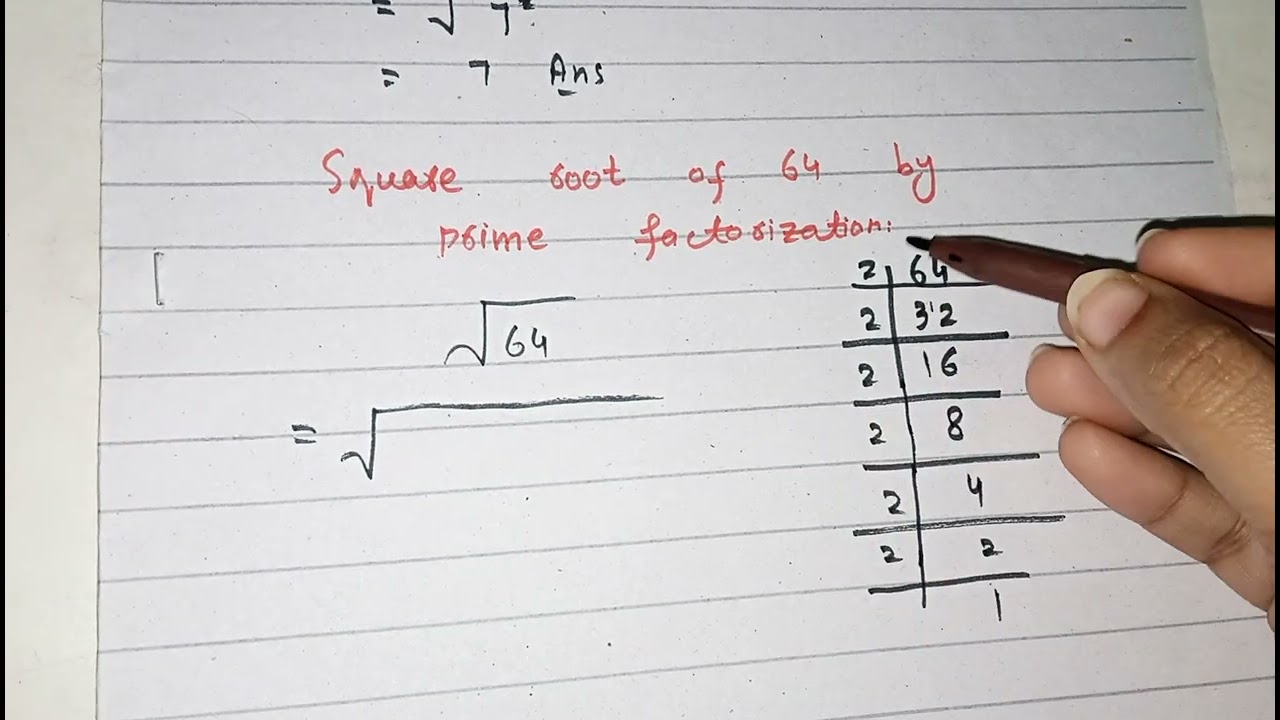 = √7²
= 7 Ans
Square root of 64 by
prime factorization:
√64
= √
2 | 64
2 | 32
2 | 16
2 | 8
2 | 4
2 | 2
1